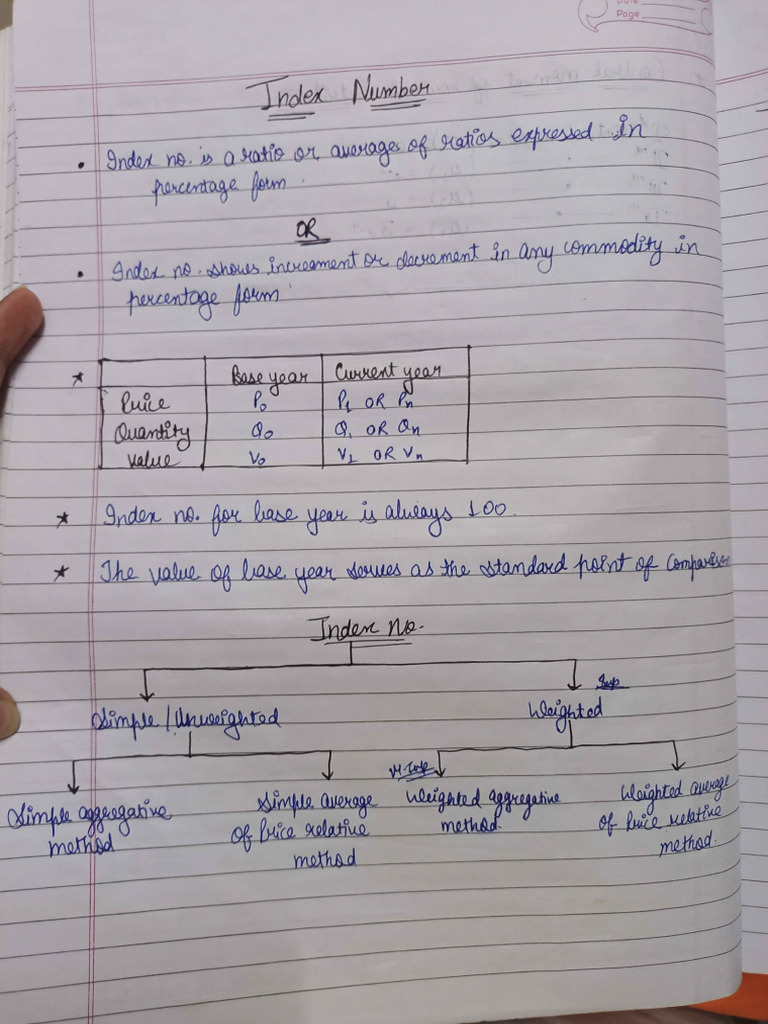 Page
Index Number
• Index no. is a ratio or average of ratios expressed in
percentage form.
OR
• Index no. shows increament or decrement in any commodity in
percentage form
* Base year Current year
Price P₀ P₁ OR Pₙ
Quantity Q₀ Q₁ OR Qₙ
Value V₀ V₁ OR Vₙ
* Index no. for base year is always 100.
* The value of base year serves as the standard point of comparison
Index No.
Imp
Simple / Unweighted Weighted
V. Imp
Simple aggregative method
Simple average of Price relative method
Weighted aggregative method.
Weighted average of Price relative method.